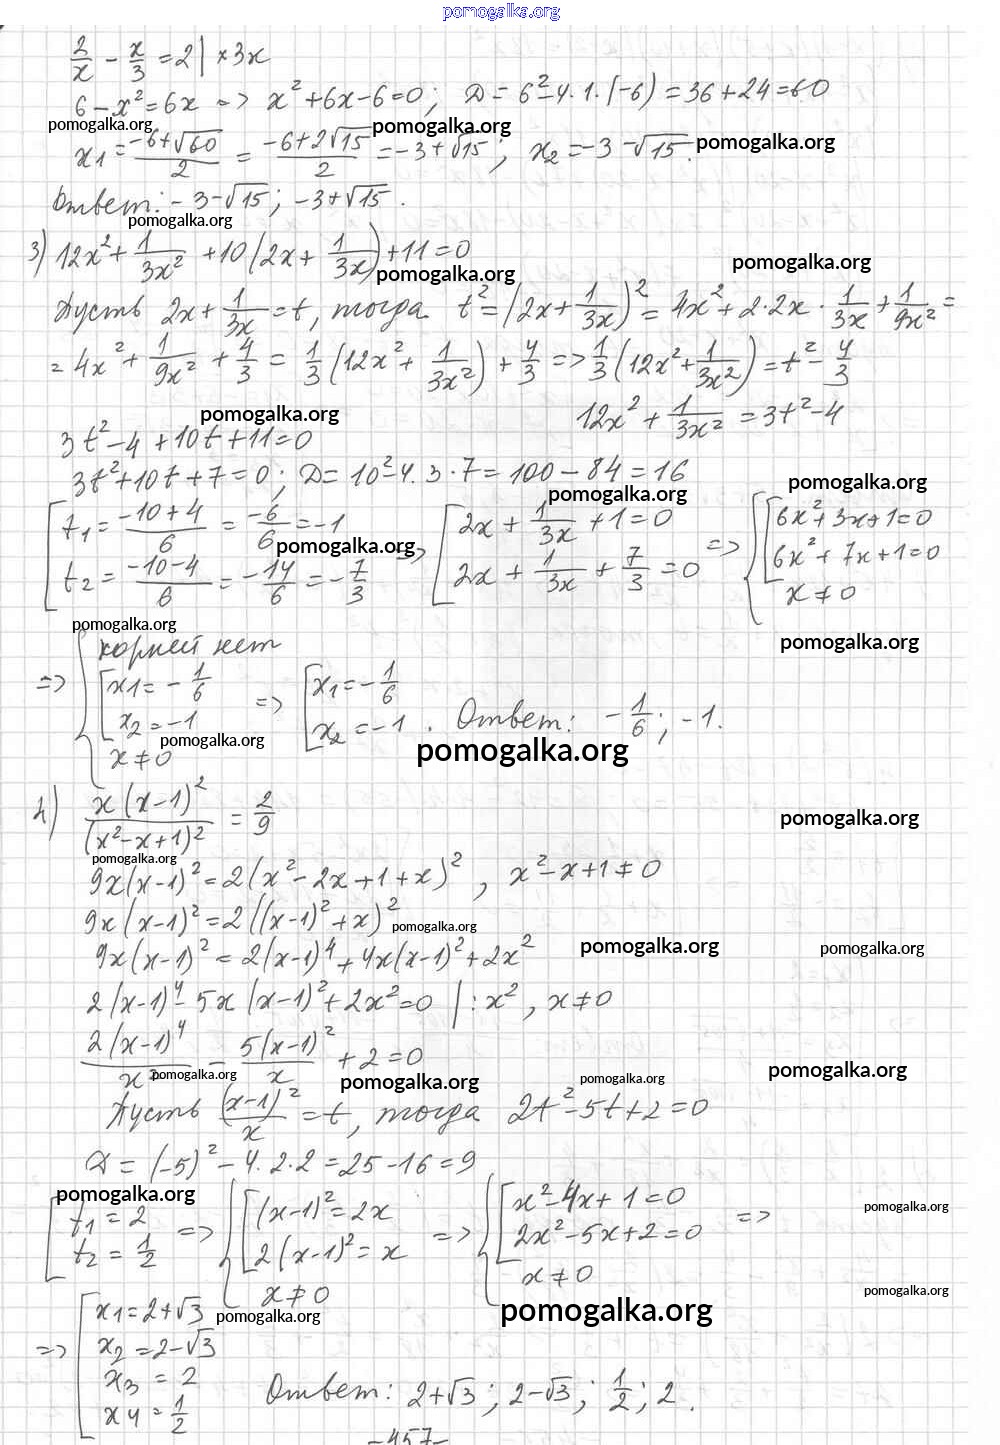 pomogalka.org
2/x - x/3 = 2 | ×3x
6 - x² = 6x => x² + 6x - 6 = 0; D = 6² - 4·1·(-6) = 36 + 24 = 60
pomogalka.org pomogalka.org pomogalka.org
x₁ = (-6+√60)/2 = (-6+2√15)/2 = -3+√15; x₂ = -3-√15.
Ответ: -3-√15; -3+√15.
pomogalka.org
3) 12x² + 1/(3x²) + 10(2x + 1/(3x)) + 11 = 0
pomogalka.org pomogalka.org
Пусть 2x + 1/(3x) = t, тогда t² = (2x + 1/(3x))² = 4x² + 2·2x · 1/(3x) + 1/(9x²) =
= 4x² + 1/(9x²) + 4/3 = 1/3 (12x² + 1/(3x²)) + 4/3 => 1/3 (12x² + 1/(3x²)) = t² - 4/3
pomogalka.org 12x² + 1/(3x²) = 3t² - 4
3t² - 4 + 10t + 11 = 0
3t² + 10t + 7 = 0; D = 10² - 4·3·7 = 100 - 84 = 16
pomogalka.org pomogalka.org
[ t₁ = (-10+4)/6 = -6/6 = -1 => [ 2x + 1/(3x) + 1 = 0 => { [ 6x² + 3x + 1 = 0
pomogalka.org
t₂ = (-10-4)/6 = -14/6 = -7/3 2x + 1/(3x) + 7/3 = 0 6x² + 7x + 1 = 0
x ≠ 0
pomogalka.org pomogalka.org
=> { корней нет
[ x₁ = -1/6 => [ x₁ = -1/6
x₂ = -1 x₂ = -1. Ответ: -1/6; -1.
x ≠ 0
pomogalka.org pomogalka.org
4) x(x-1)²/(x²-x+1)² = 2/9
pomogalka.org pomogalka.org
9x(x-1)² = 2(x² - 2x + 1 + x)², x² - x + 1 ≠ 0
9x(x-1)² = 2((x-1)² + x)²
pomogalka.org pomogalka.org pomogalka.org
9x(x-1)² = 2(x-1)⁴ + 4x(x-1)² + 2x²
2(x-1)⁴ - 5x(x-1)² + 2x² = 0 |: x², x ≠ 0
2(x-1)⁴/x² - 5(x-1)²/x + 2 = 0
pomogalka.org pomogalka.org pomogalka.org pomogalka.org
Пусть (x-1)²/x = t, тогда 2t² - 5t + 2 = 0
D = (-5)² - 4·2·2 = 25 - 16 = 9
pomogalka.org pomogalka.org
[ t₁ = 2 => { [ (x-1)² = 2x => { [ x² - 4x + 1 = 0 =>
t₂ = 1/2 2(x-1)² = x 2x² - 5x + 2 = 0
x ≠ 0 x ≠ 0
pomogalka.org pomogalka.org pomogalka.org
=> [ x₁ = 2+√3
x₂ = 2-√3
x₃ = 2
x₄ = 1/2 Ответ: 2+√3; 2-√3; 1/2; 2.
-457-